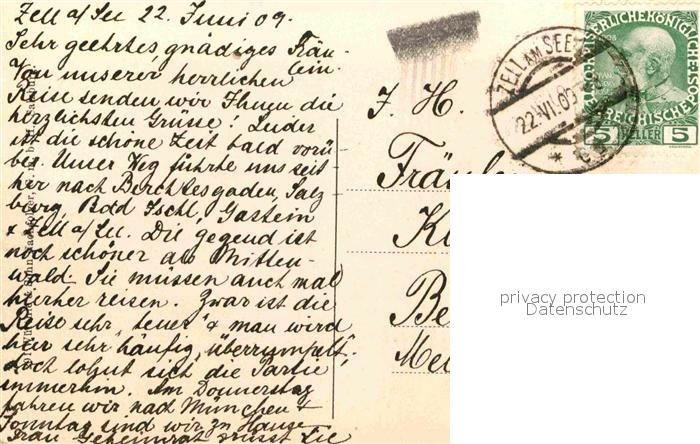 Zell a/See 22. Juni 09.
Sehr geehrtes, gnädiges Fräu-
lein.
Von unserer herrlichen
Reise senden wir Ihnen die
herzlichsten Grüsse! Leider
ist die schöne Zeit bald vorü-
ber. Unser Weg führte uns seit
her nach Berchtesgaden, Salz
burg, Bad Ischl, Gastein
& Zell a/See. Die Gegend ist
noch schöner als Mitten-
wald. Sie müssen auch mal
hierher reisen. Zwar ist die
Reise sehr "teuer" & man wird
hier sehr häufig "überrumpelt",
doch lohnt sich die Partie
immerhin. Am Donnerstag
fahren wir nach München &
Sonntag sind wir zu Hause.
Frau Geheimrat grüsst Sie
I. H.
Fräule
K
Be
Me
ZELL AM SEE
22.VI.09
5 HELLER 5
privacy protection
Datenschutz